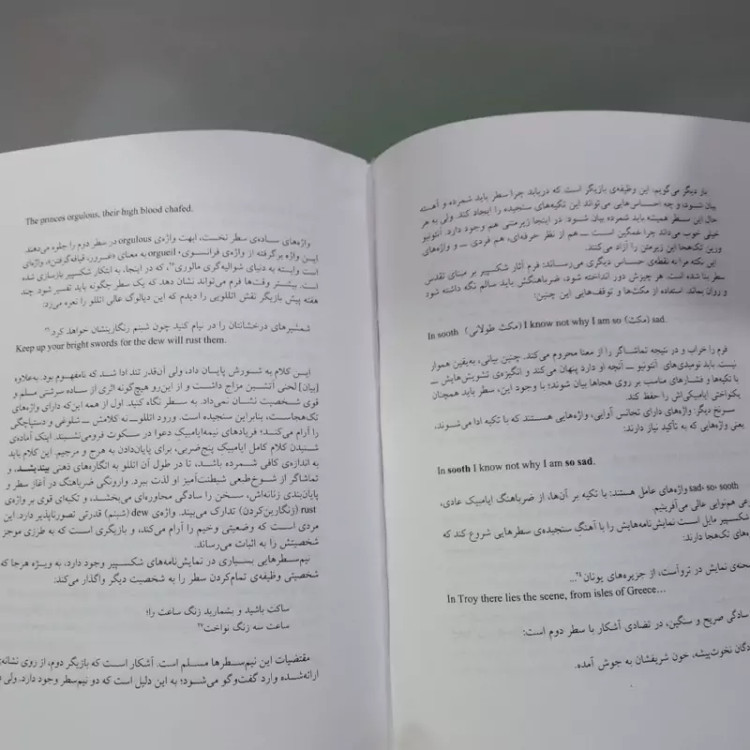 باز دیگر می‌گویم. این وظیفه‌ی بازیگر است که دریابد چرا سطر باید شمرده و آهسته
بیان شود، و چه احساس‌هایی می‌تواند این تکیه‌های سنجیده را ایجاد کند. ولی به هر
حال این سطر همیشه باید شمرده بیان شود: در اینجا زیرمتنی هم وجود دارد. آنتونیو
خیلی خوب می‌داند چرا غمگین است ــ هم از نظر حرفه‌ای، هم فردی ــ و واژه‌های
وزین تک‌هجا این زیرمتن را آزاد می‌کنند.
این نکته مرا به نقطه‌ی حساس دیگری می‌رساند: فرم آثار شکسپیر بر مبنای تقدس
سطر بنا شده است. هر چیزش دور انداخته شود، ضرباهنگش باید سالم نگه داشته شود
و روان بماند. استفاده از مکث‌ها و توقف‌هایی این چنین:
In sooth (مکث طولانی) I know not why I am so (مکث) sad.
فرم را خراب و در نتیجه تماشاگر را از معنا محروم می‌کند. چنین بیانی، به‌یقین هموار
نیست. باید نومیدی‌های آنتونیو ــ آنچه او دارد پنهان می‌کند و انگیزه‌ی تشویش‌هایش ــ
با تکیه‌ها و فشارهای مناسب بر روی هجاها بیان شوند؛ با وجود این، سطر باید همچنان
یکنواختی ایامبیکی‌اش را حفظ کند.
سرنخ دیگر: واژه‌های دارای تجانس آوایی، واژه‌هایی هستند که با تکیه ادا می‌شوند،
یعنی واژه‌هایی که به تأکید نیاز دارند:
In sooth I know not why I am so sad.
sad، so، sooth واژه‌های عامل هستند: با تکیه بر آن‌ها، از ضرباهنگ ایامبیک عادی،
هم‌نوایی عالی می‌آفرینیم.
شکسپیر مایل است نمایش‌نامه‌هایش را با آهنگ سنجیده‌ی سطرهایی شروع کند که
های تک‌هجا دارند:
صحنه‌ی نمایش در ترواست، از جزیره‌های یونان ۲۸...
In Troy there lies the scene, from isles of Greece…
سادگی صریح و سنگین، در تضادی آشکار با سطر دوم است:
دگان نخوت‌پیشه، خون شریفشان به جوش آمده.
The princes orgulous, their high blood chafed.
واژه‌های ساده‌ی سطر نخست، ابهت واژه‌ی orgulous در سطر دوم را جلوه می‌دهند.
این واژه برگرفته از واژه‌ی فرانسوی، orgueil به معنای «غرور، قیافه‌گرفتن»، واژه‌ای
است وابسته به دنیای شوالیه‌گری مالوری، که در اینجا، به ابتکار شکسپیر بازسازی شده
است. بیشتر وقت‌ها فرم می‌تواند نشان دهد که یک سطر چگونه باید تفسیر شود. چند
هفته پیش بازیگر نقش اتللویی را دیدم که این دیالوگ عالی اتللو را نعره می‌زد:
شمشیرهای درخشانتان را در نیام کنید چون شبنم زنگارینشان خواهد کرد.
Keep up your bright swords for the dew will rust them.
این کلام به شورش پایان داد، ولی آن‌قدر تند ادا شد که نامفهوم بود. به‌علاوه
(بیان) لحنی آتشین مزاج داشت و از این‌رو هیچ‌گونه اثری از ساده سرشتی مسلم و
قوی شخصیت نشان نمی‌داد. به سطر نگاه کنید. اول از همه این‌که دارای واژه‌های
تک‌هجاست، بنابراین سنجیده است. ورود اتللو ــ نه کلامش ــ شلوغی و دستپاچگی
را آرام می‌کند؛ فریادهای نیمه‌ایامبیک دعوا در سکوت فرومی‌نشیند. اینک آماده‌ی
شنیدن کلام کامل ایامبیک پنج‌ضربی، برای پایان‌دادن به هرج و مرجیم. این کلام باید
به اندازه‌ی کافی شمرده باشد، تا در طول آن اتللو به انگاره‌های ذهنی بیندیشد، و
تماشاگر از شوخ‌طبعی شیطنت‌آمیز او لذت ببرد. وارونگی ضرباهنگ در آغاز سطر و
پایان‌بندی زنانه‌اش، سخن را سادگی محاوره‌ای می‌بخشد، و تکیه‌ای قوی بر واژه‌ی
rust (زنگارین‌کردن) تدارک می‌بیند. واژه‌ی dew (شبنم) قدرتی تصورناپذیر دارد. این
مردی است که وضعیتی وخیم را آرام می‌کند، و بازیگری است که به طرزی موجز
شخصیتش را به اثبات می‌رساند.
نیم‌سطرهایی بسیاری در نمایش‌نامه‌های شکسپیر وجود دارد، به ویژه هرجا که
شخصیتی وظیفه‌ی تمام‌کردن سطر را به شخصیت دیگر واگذار می‌کند:
ساکت باشید و بشمارید زنگ ساعت را؛
ساعت سه زنگ نواخت
مقتضیات این نیم‌سطرها مسلم است. آشکار است که بازیگر دوم، از روی نشانه‌ی
ارائه‌شده وارد گفت‌وگو می‌شود؛ به این دلیل است که دو نیم‌سطر وجود دارد. ولی